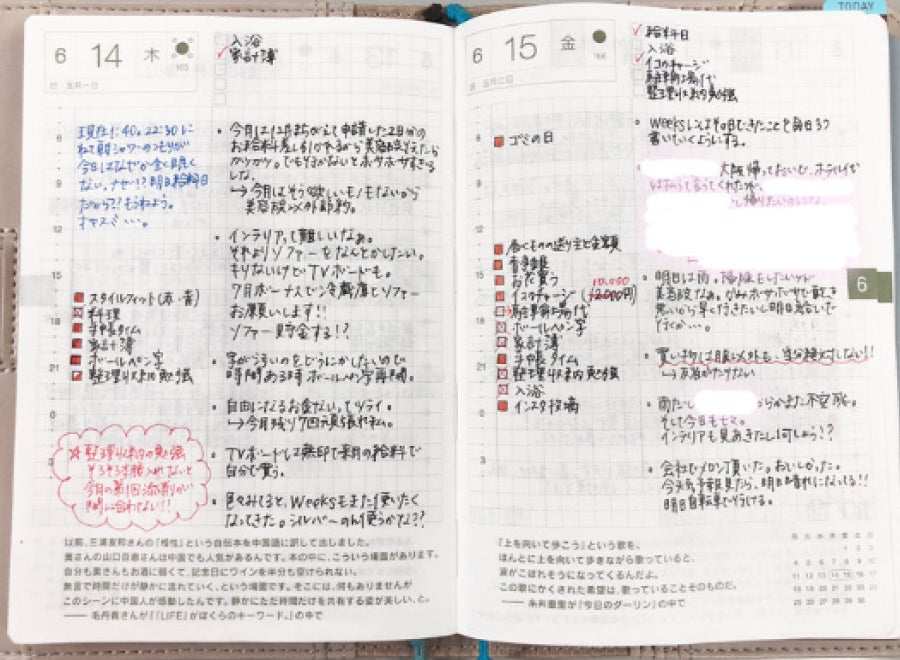 6 14 木
日 五月一日
入浴
家計簿
現在1:40。22:30に
ねて朝シャワーのつもりが
今日はなぜか全く眠く
ない。ナゼ!?明日給料日
だから?!もうねよう。
オヤスミ…。
スタイルフィット(赤・青)
料理
手帳タイム
家計簿
ボールペン字
整理収納勉強
整理収納の勉強
そろそろ本腰入れないと
今月の第1回添削が
間に合わない!!
・今月は12月まちがえて申請した2日分の
お給料差し引かれるから美容院そえたら
カツカツ。でもそめないとボサボサすぎる
しな。
→今月はそう欲しいモノもないから
美容院以外節約。
・インテリアって難しいなぁ。
それよりソファーをなんとかしたい。
キリないけどTVボードも。
7月ボーナスで冷蔵庫とソファー
お願いします!!
ソファー貯金する!?
・字がうすいのをどうにかしたいので
時間ある時ボールペン字再開。
・自由になるお金ないってツライ。
→今月残り7回頑張れ私。
・TVボードは無印で来月の給料で
自分で買う。
・色々みてると、Weeksもまた使いたく
なってきた。シルバーのん使うかな??
以前、三浦友和さんの『相性』という自伝本を中国語に訳して出しました。
奥さんの山口百恵さんは中国でも人気があるんです。本の中に、こういう場面があります。
自分も奥さんもお酒に弱くて、記念日にワインを半分も空けられない。
無言で時間だけが静かに流れていく、という場面です。そこには、何もありませんが
このシーンに中国人が感動したんです。静かにただ時間だけを共有する姿が美しい、と。
── 毛丹青さんが『「LIFE」がぼくらのキーワード。』の中で
TODAY
6 15 金
日 五月二日
給料日
入浴
イコカチャージ
駐輪場代
整理収納勉強
ゴミの日
色々なものの送り主と金額
青手帳
お花買う
10,000
イコカチャージ(12,000円)
駐車輪場代
ボールペン字
家計簿
手帳タイム
整理収納勉強
入浴
インスタ投稿
・Weeksにはその日できたことを毎日3つ
書いていくようにする。
大阪帰っておいで、ホテル代
はらうって言うてくれたが、
し帰りたいのになぁ
・明日は雨。掃除もしたいけど
美容院なぁ。
行くか…。
・買い物は服以外も、当分絶対しない!!
→
・雨だし からかまた不安症。
そして今日もヒマ。
インテリアも見あきたし何しよう!?
・会社でメロン頂いた。おいしかった。
今天気予報見たら、明日晴れになってる!!
明日自転車でそうじする。
6
「上を向いて歩こう」という歌を、
ほんとに上を向いて歩きながら歌っていると、
涙がこぼれそうになってくるんだよ。
この歌にかくされた希望は、歌っていることそのものだ。
── 糸井重里が『今日のダーリン』の中で
月 火 水 木 金 土 日
1 2 3
4 5 6 7 8 9 10
11 12 13 14 15 16 17
18 19 20 21 22 23 24
25 26 27 28 29 30